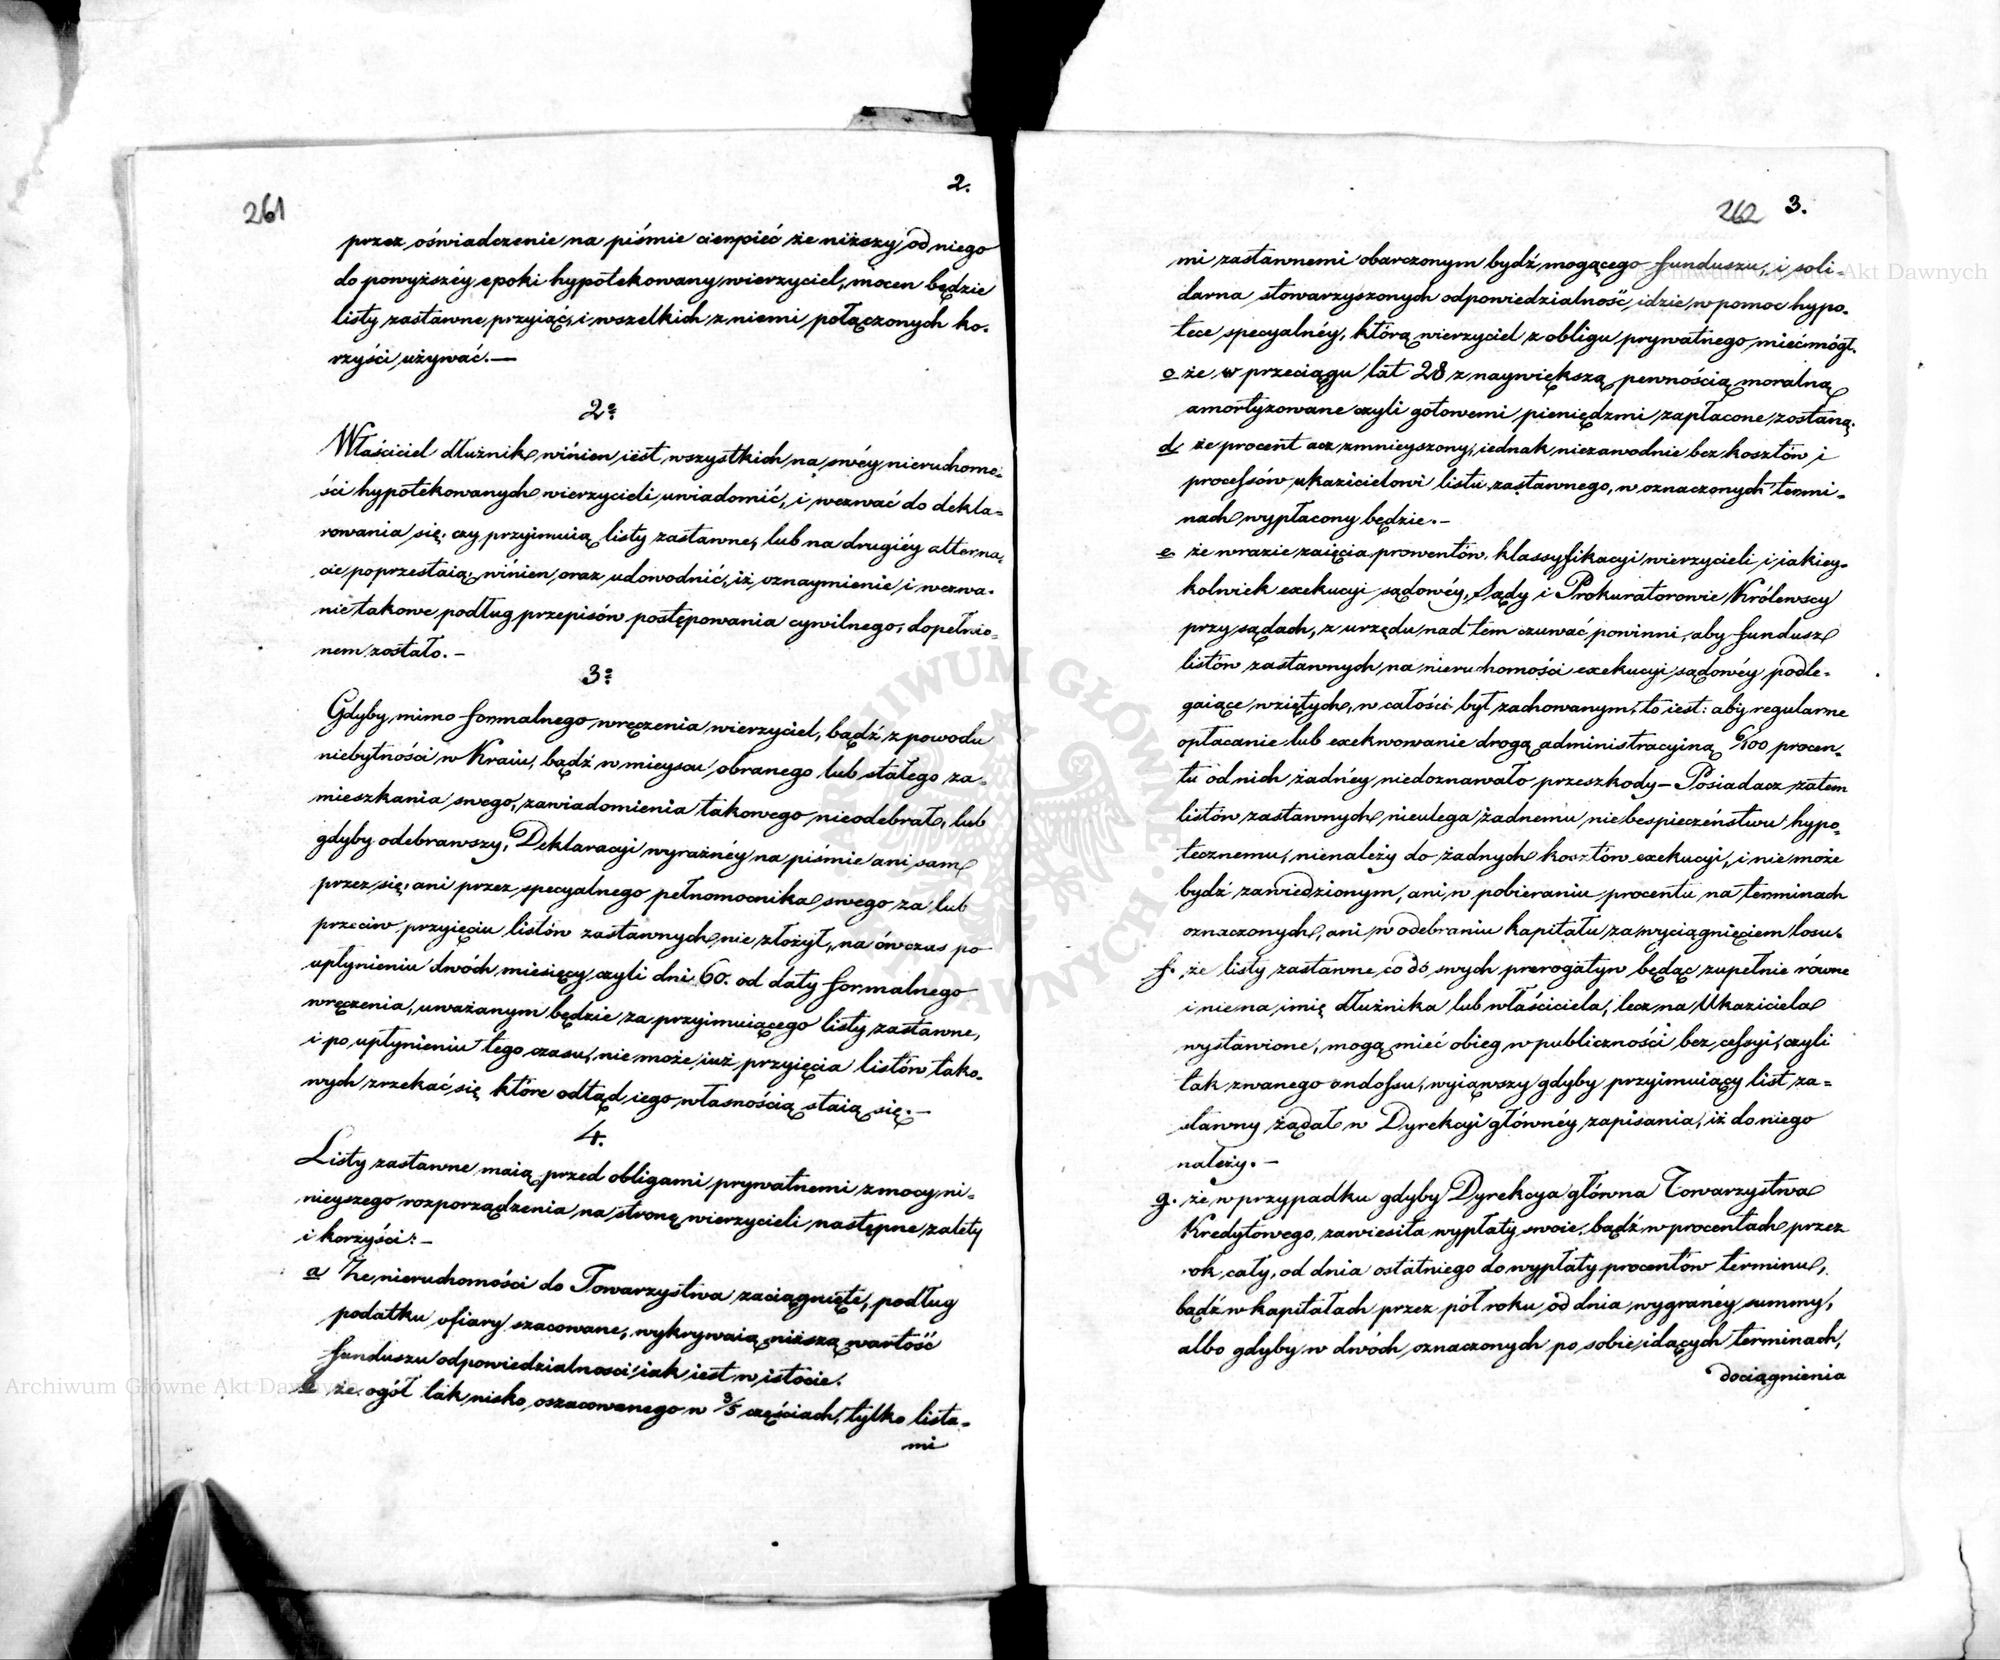 261
2.
przez oświadczenie na piśmie cierpieć że niższy od niego
do powyższéy epoki hypotekowany wierzyciel, mocen będzie
listy zastawne przyiąć, i wszelkich z niemi połączonych ko-
rzyści używać.—
2º
Właściciel dłużnik winien iest wszystkich na swéy nieruchomo-
ści hypotekowanych wierzycieli uwiadomić, i wezwać do dekla-
rowania się, czy przyimuią listy zastawne, lub na drugiéy alterna-
cie poprzestaią, winien oraz udowodnić, iż oznaymienie i wezwa-
nie takowe podług przepisów postępowania cywilnego, dopełnio-
nem zostało.—
3º
Gdyby mimo formalnego wręczenia wierzyciel, bądź z powodu
niebytności w Kraiu, bądź w mieyscu obranego lub stałego za-
mieszkania swego, zawiadomienia takowego nieodebrał, lub
gdyby odebrawszy, Deklaracyi wyraźnéy na piśmie ani sam
przez się, ani przez specyalnego pełnomocnika swego za lub
przeciw przyięciu listów zastawnych nie złożył, na ówczas po
upłynieniu dwóch miesięcy czyli dni 60. od daty formalnego
wręczenia, uważanym będzie za przyimuiącego listy zastawne,
i po upłynieniu tego czasu, nie może iuż przyięcia listów tako-
wych zrzekać się które odtąd iego własnością staią się.—
4.
Listy zastawne maią przed obligami prywatnemi z mocy ni-
nieyszego rozporządzenia na stronę wierzycieli następne zalety
i korzyści:—
a Że nieruchomości do Towarzystwa zaciągnięte, podług
podatku ofiary szacowane, wykrywaią niższą wartość
funduszu odpowiedzialnosci iak iest w istocie.
b że ogół tak nisko oszacowanego w 3/5 częściach, tylko lista-
mi
262 3.
mi zastawnemi obarczonym bydź mogącego funduszu, i soli-
darna stowarzyszonych odpowiedzialność idzie w pomoc hypo-
tece specyalnéy, którą wierzyciel z obligu prywatnego mieć mógł.
c że w przeciągu lat 28 z naywiększą pewnością moralną
amortyzowane czyli gotowemi pieniędzmi zapłacone zostaną.
d że procent acz zmnieyszony, iednak niezawodnie bez kosztów i
processów ukazicielowi listu zastawnego, w oznaczonych termi-
nach wypłacony będzie.—
e że w razie zaięcia prowentów, klassyfikacyi wierzycieli i iakiey-
kolwiek exekucyi sądowéy, Sądy i Prokuratorowie Królewscy
przy sądach, z urzędu nad tem czuwać powinni, aby fundusz
listów zastawnych na nieruchomości exekucyi sądowéy podle-
gaiące wziętych, w całości był zachowanym, to iest: aby regularne
opłacanie lub exekwowanie drogą administracyiną 6/100 procen-
tu od nich żadnéy niedoznawało przeszkody— Posiadacz zatem
listów zastawnych nieulega żadnemu niebespieczeństwu hypo-
tecznemu, nienależy do żadnych kosztów exekucyi, i nie może
bydź zawiedzionym, ani w pobieraniu procentu na terminach
oznaczonych, ani w odebraniu kapitału za wyciągnięciem losu.
f. że listy zastawne co do swych prerogatyw będąc zupełnie równe
i nie na imię dłużnika lub właściciela, lecz na Ukaziciela
wystawione, mogą mieć obieg w publiczności bez cessyi, czyli
tak zwanego endossu, wyiąwszy gdyby przyimuiący list za-
stawny żądał w Dyrekcyi głównéy zapisania, iż do niego
należy.—
g. że w przypadku gdyby Dyrekcya główna Towarzystwa
Kredytowego, zawiesiła wypłaty swoie, bądź w procentach przez
rok cały, od dnia ostatniego do wypłaty procentów terminu,
bądź w kapitałach przez pół roku od dnia wygranéy summy,
albo gdyby w dwóch oznaczonych po sobie idących terminach,
dociągnienia
Archiwum Główne Akt Dawnych